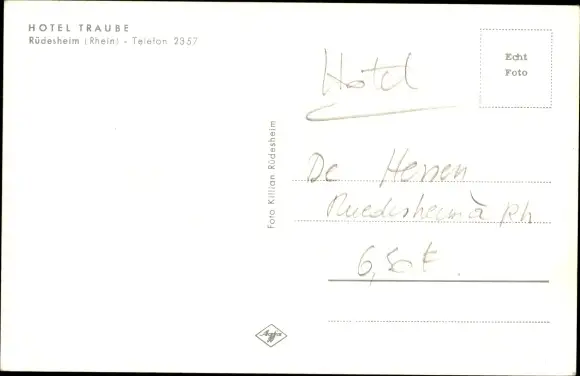 HOTEL TRAUBE
Rüdesheim (Rhein) - Telefon 2357
Echt
Foto
Foto Kilian Rüdesheim
Agfa
Hotel
De Hessen
Ruedesheim à Rh
6,50 €.